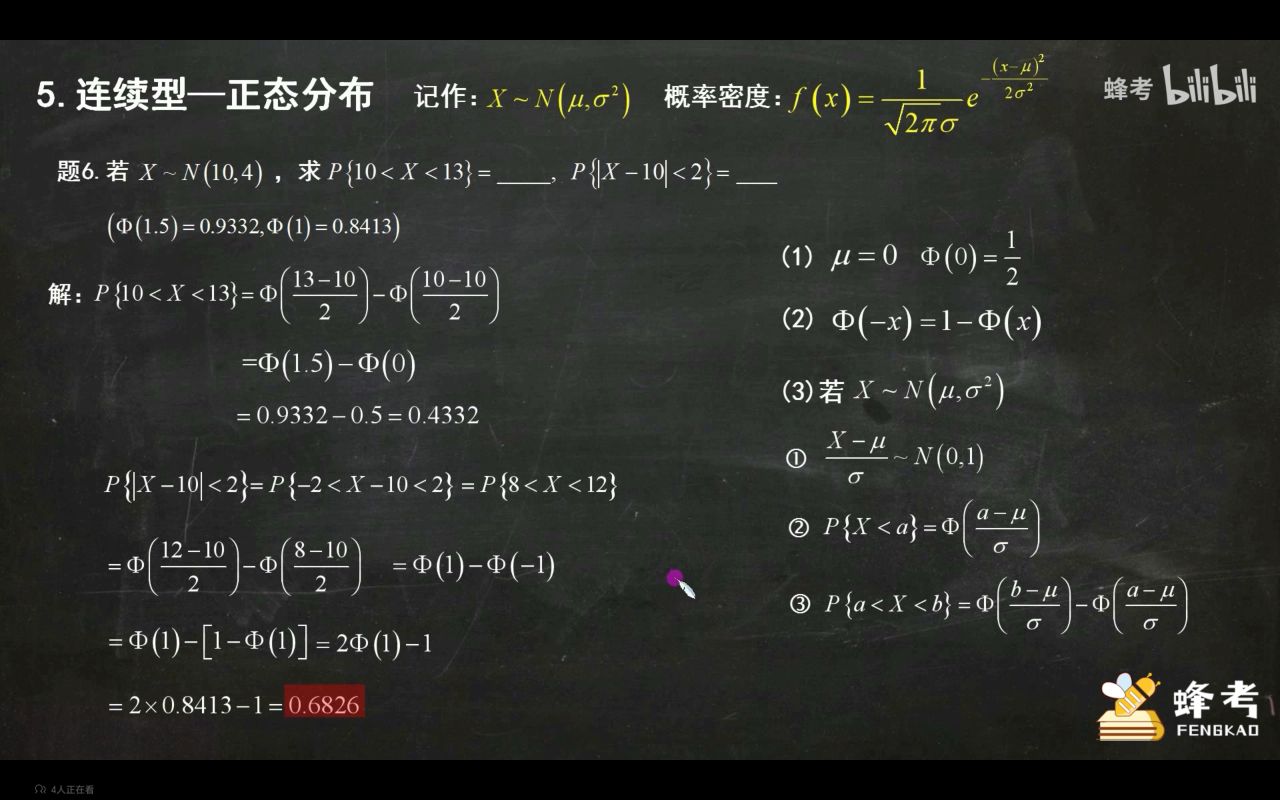 5.连续型—正态分布 记作：X ~ N(μ,σ²) 概率密度：f(x) = \frac{1}{\sqrt{2π}σ} e^{-\frac{(x-μ)^2}{2σ^2}}
蜂考 bilibili
题6.若 X ~ N(10,4) ，求 P{10 < X < 13} = ____, P{|X − 10| < 2} = ____
(Φ(1.5) = 0.9332,Φ(1) = 0.8413)
解：P{10 < X < 13} = Φ(\frac{13−10}{2}) − Φ(\frac{10−10}{2})
=Φ(1.5) − Φ(0)
= 0.9332 − 0.5 = 0.4332
P{|X − 10| < 2} = P{−2 < X − 10 < 2} = P{8 < X < 12}
= Φ(\frac{12−10}{2}) − Φ(\frac{8−10}{2}) = Φ(1) − Φ(−1)
= Φ(1) − [1 − Φ(1)] = 2Φ(1) − 1
= 2×0.8413 − 1 = 0.6826
(1) μ = 0 Φ(0) = \frac{1}{2}
(2) Φ(−x) = 1 − Φ(x)
(3)若 X ~ N(μ,σ²)
① \frac{X − μ}{σ} ~ N(0,1)
② P{X < a} = Φ(\frac{a − μ}{σ})
③ P{a < X < b} = Φ(\frac{b − μ}{σ}) − Φ(\frac{a − μ}{σ})
蜂考
FENGKAO
4人正在看